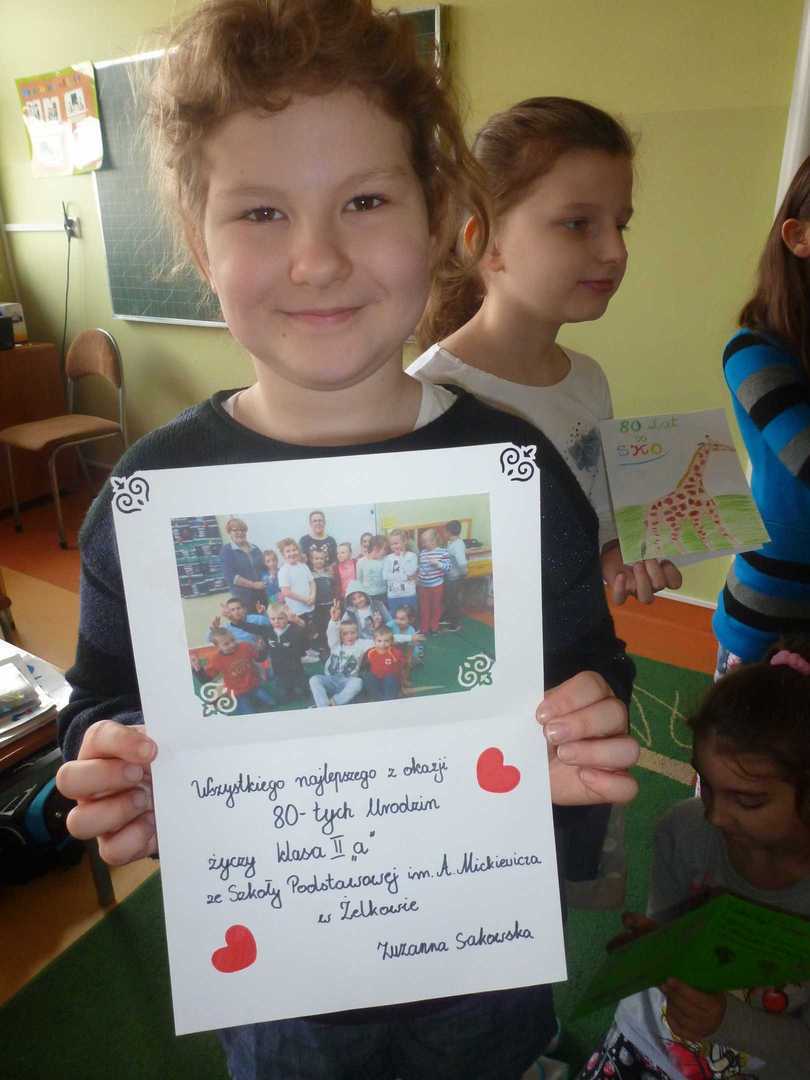 80 lat
SKO
Wszystkiego najlepszego z okazji
80-tych Urodzin
życzy klasa II „a”
ze Szkoły Podstawowej im. A. Mickiewicza
w Żelkowie
Zuzanna Sakowska